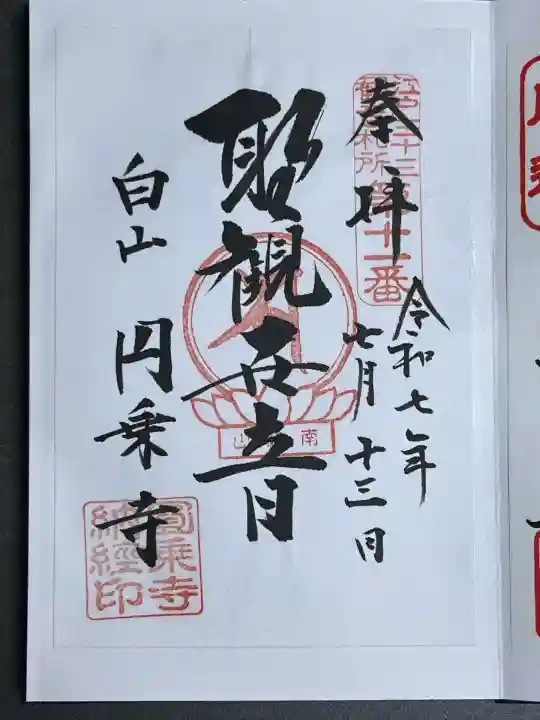 奉拝
令和七年
七月十三日
聖観世音
白山 円乗寺
江戸三十三
観音札所
第十一番
南 山
圓乗寺
納経印